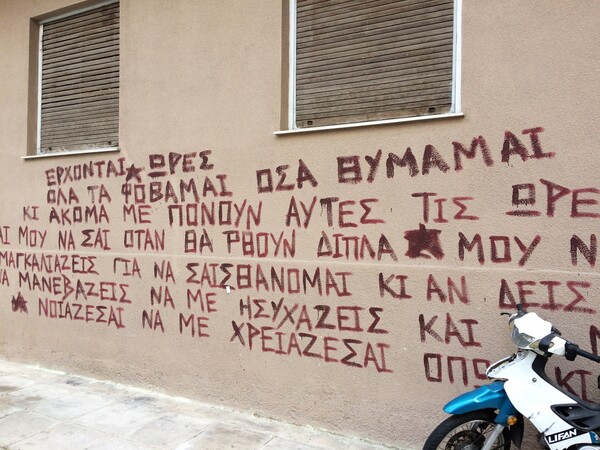 ΕΡΧΟΝΤΑΙ ΩΡΕΣ
ΟΛΑ ΤΑ ΦΟΒΑΜΑΙ ΟΣΑ ΘΥΜΑΜΑΙ
ΚΙ ΑΚΟΜΑ ΜΕ ΠΟΝΟΥΝ ΑΥΤΕΣ ΤΙΣ ΩΡΕΣ
ΜΟΥ ΝΑ ΣΑΙ ΟΤΑΝ ΘΑ ΡΘΟΥΝ ΔΙΠΛΑ ΜΟΥ Ν
ΜΑΓΚΑΛΙΑΖΕΙΣ ΓΙΑ ΝΑ ΣΑΙΣΘΑΝΟΜΑΙ ΚΙ ΑΝ ΔΕΙΣ
ΝΑ ΜΑΝΕΒΑΖΕΙΣ ΝΑ ΜΕ ΗΣΥΧΑΖΕΙΣ ΚΑΙ Ν
ΝΟΙΑΖΕΣΑΙ ΝΑ ΜΕ ΧΡΕΙΑΖΕΣΑΙ ΟΠΩ
LIFAN